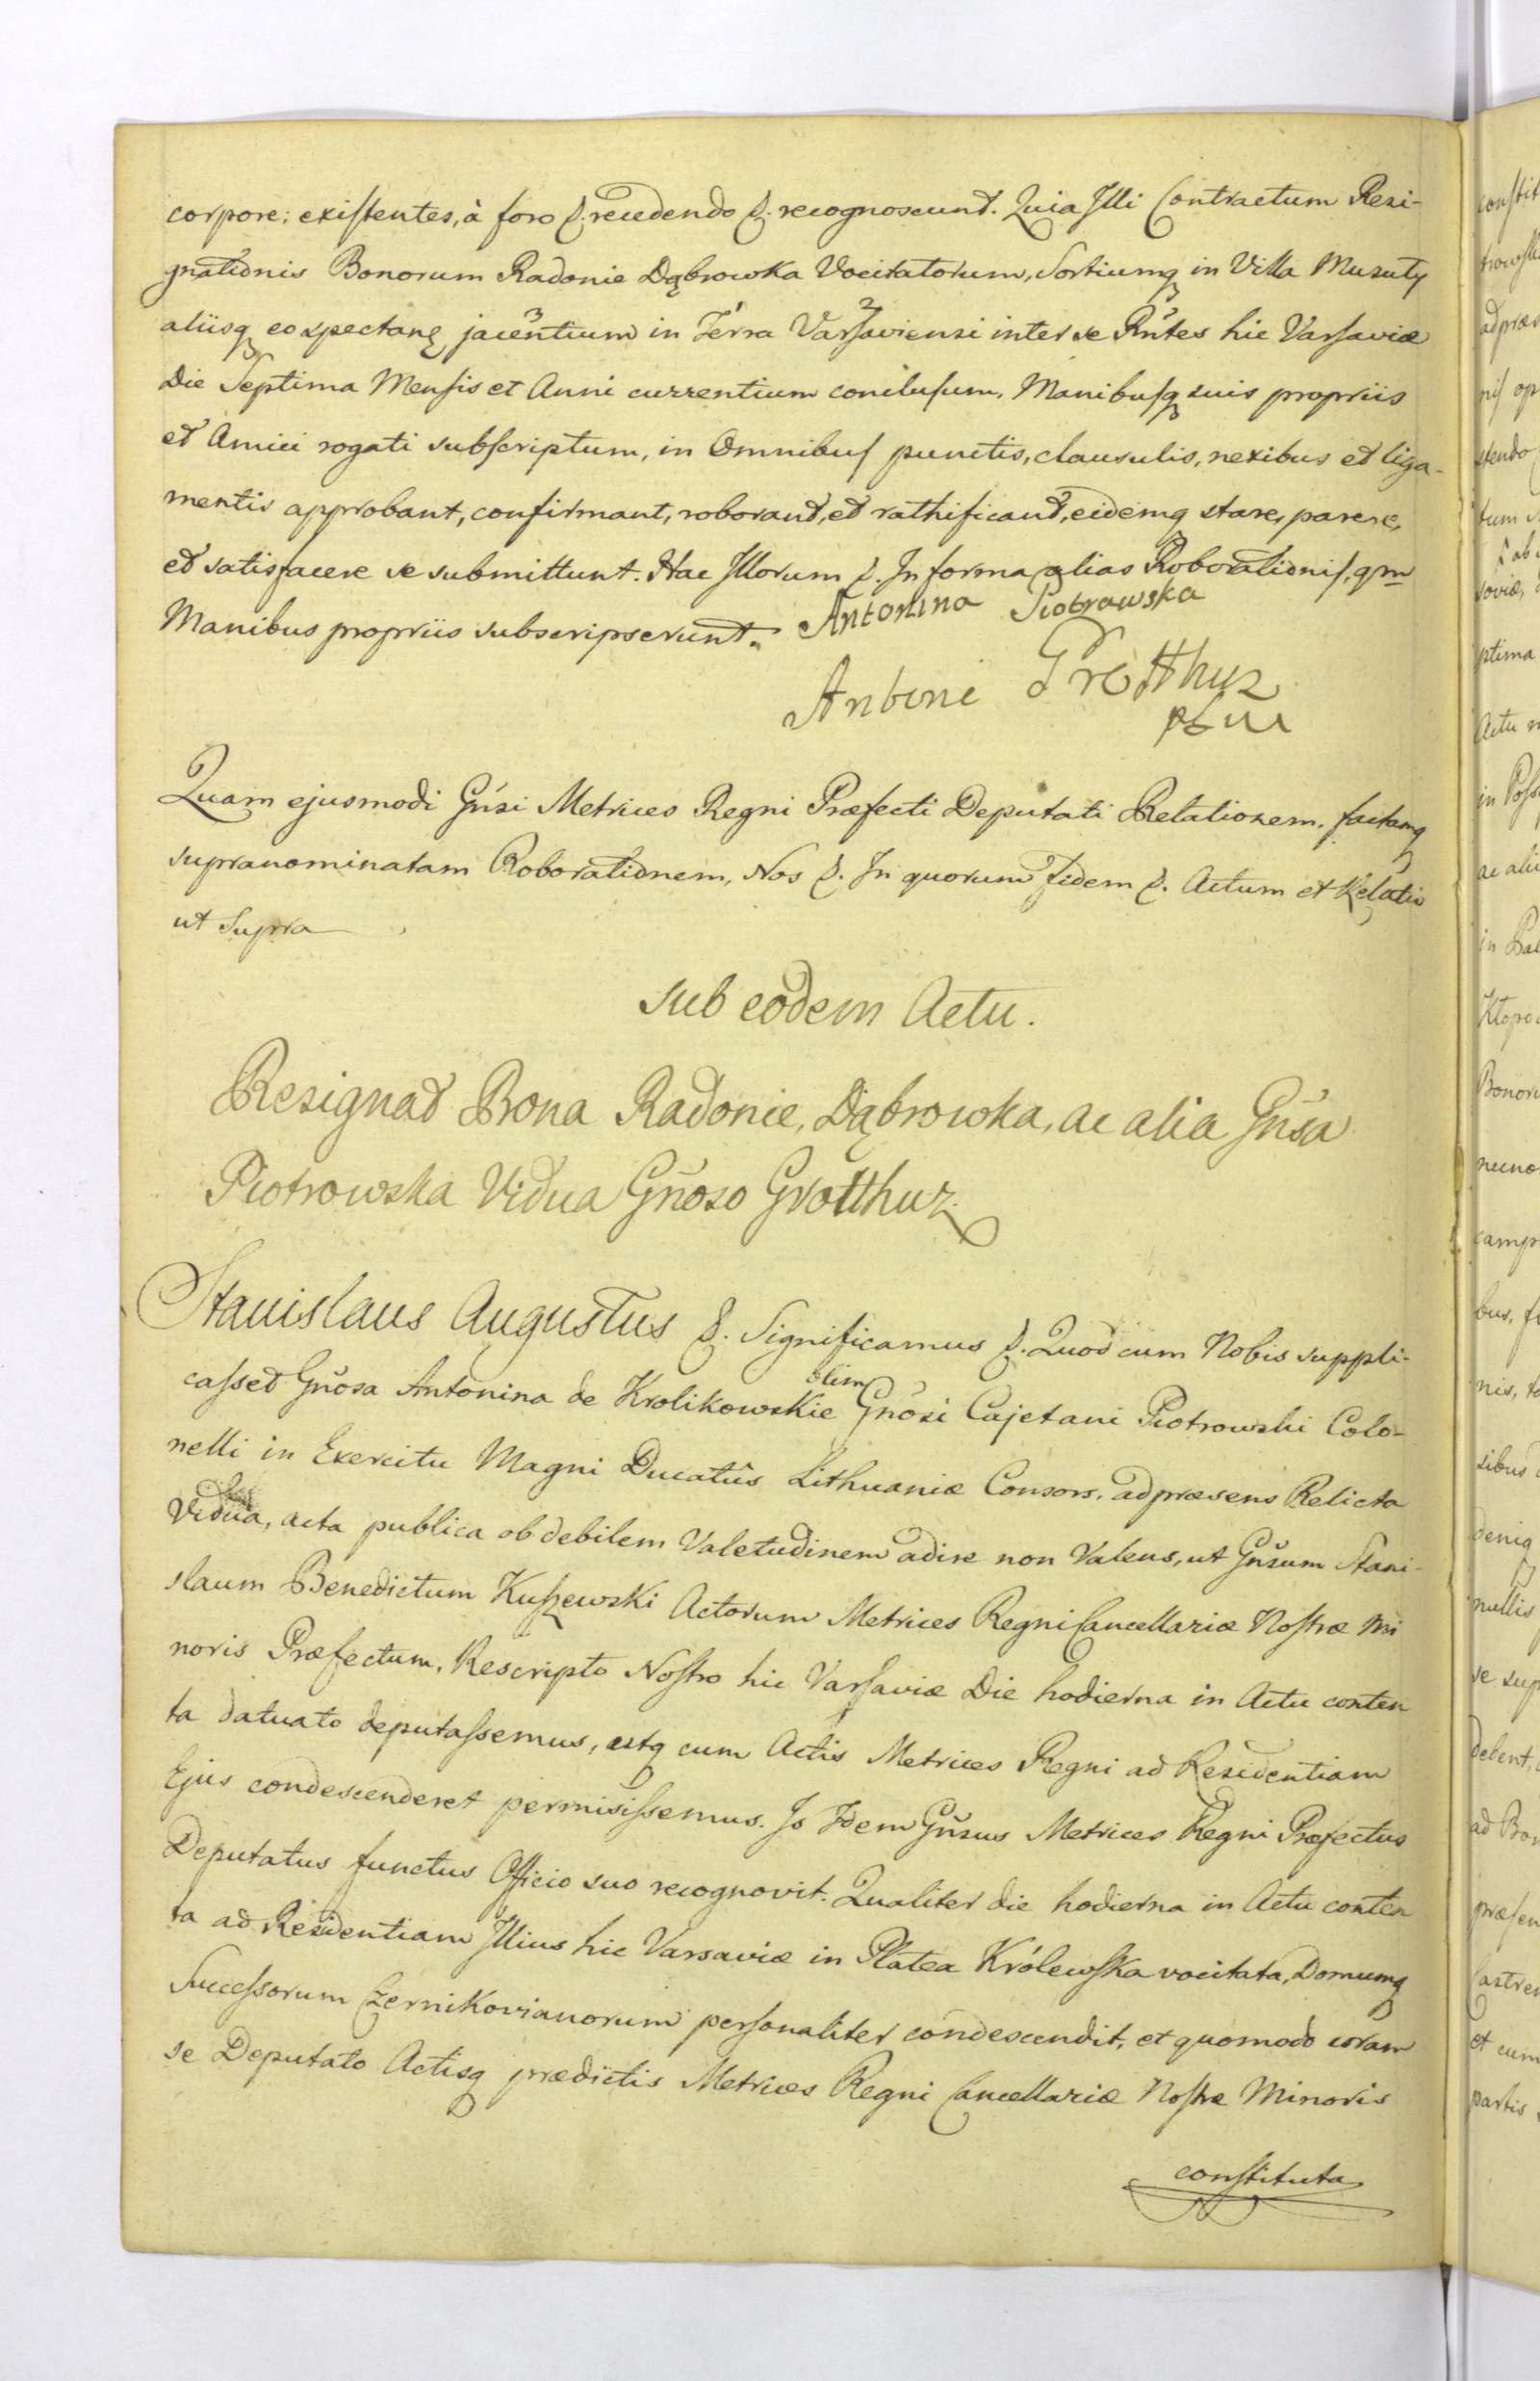 corpore; existentes, à foro &. recedendo &. recognoscunt. Quia Illi Contractum Resi-
gnationis Bonorum Radonie Dąbrowka Vocitatorum, Sortiumq in Villa Musuły
aliisq eo spectanē jacentium in Terra Varsaviensi inter se Rñtes hic Varsaviæ
Die Septima Mensis et Anni currentium conclusum, Manibusq suis propriis
et Amici rogati subscriptum, in Omnibus punctis, clausulis, nexibus et liga-
mentis approbant, confirmant, roborant, et rathificant, eidemq stare, parere,
et satisfacere se submittunt. Hac Illorum &. In forma alias Roborationis, qm
Manibus propriis subscripserunt.
Antonina Piotrawska
Antoni Grotthuz
Quam ejusmodi Gñsi Metrices Regni Præfecti Deputati Relationem, factamq
supranominatam Roborationem, Nos &. In quorum fidem &. Actum et Relatio
ut Supra
Sub eodem Actu.
Resignat Bona Radonie, Dąbrowka, ac alia Gñsa
Piotrowska Vidua Gñoso Grotthuz
Stanislaus Augustus &. Significamus &. Quod cum Nobis suppli-
casset Gñosa Antonina de Krolikowskie olim Gnosi Cajetani Piotrowski Colo-
nelli in Exercitu Magni Ducatûs Lithuaniæ Consors, ad præsens Relicta
Vidua, acta publica ob debilem Valetudinem adire non Valens, ut Gñsum Stani-
slaum Benedictum Kuszewski Actorum Metrices Regni Cancellariæ Nostræ Mi
noris Præfectum, Rescripto Nostro hic Varsaviæ Die hodierna in Actu conten
ta datuato deputassemus, estq cum Actis Metrices Regni ad Residentiam
Ejus condescenderet permisissemus. Is Idem Gñsus Metrices Regni Præfectus
Deputatus functus Officio suo recognovit. Qualiter die hodierna in Actu conten
ta ad Residentiam Illius hic Varsaviæ in Platea Królewska vocitata, Domumq
Successorum Czernikovianorum personaliter condescendit, et quomodo coram
se Deputato Actisq prædictis Metrices Regni Cancellariæ Nostræ Minoris
constituta